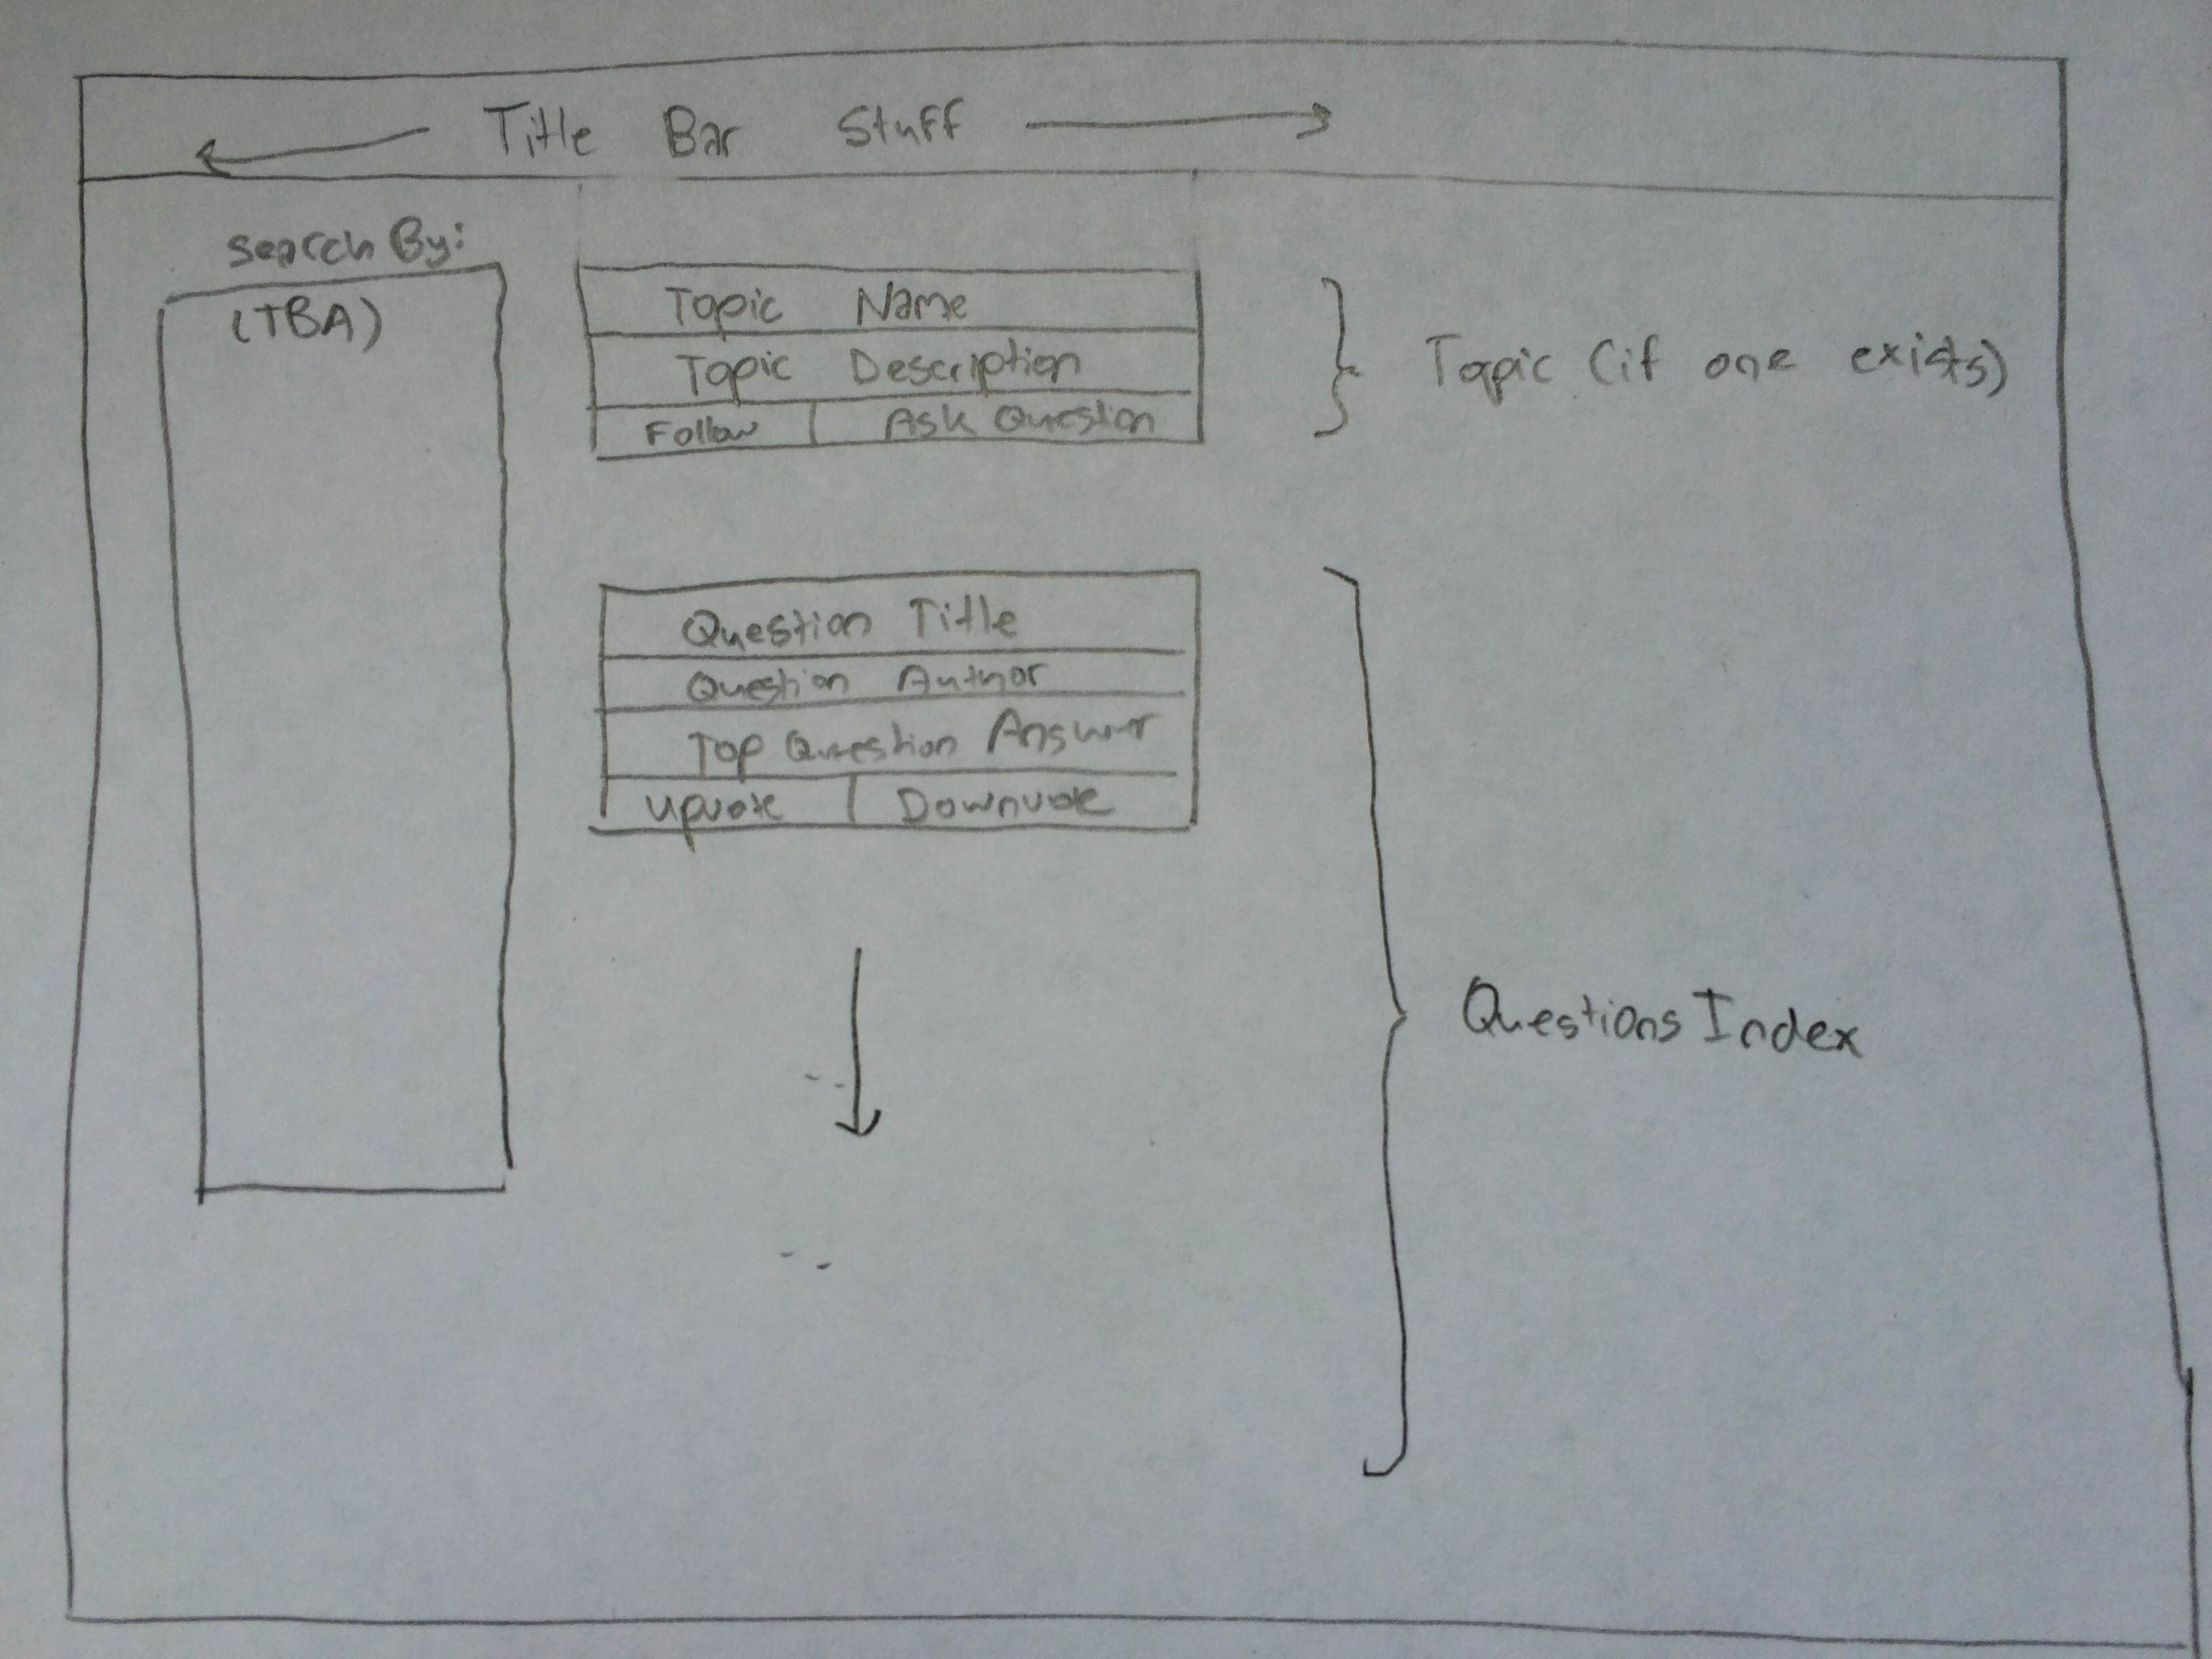 Title Bar Stuff
Search By:
(TBA)
Topic Name
Topic Description
Follow
Ask Question
Topic (if one exists)
Question Title
Question Author
Top Question Answer
Upvote
Downvote
Questions Index